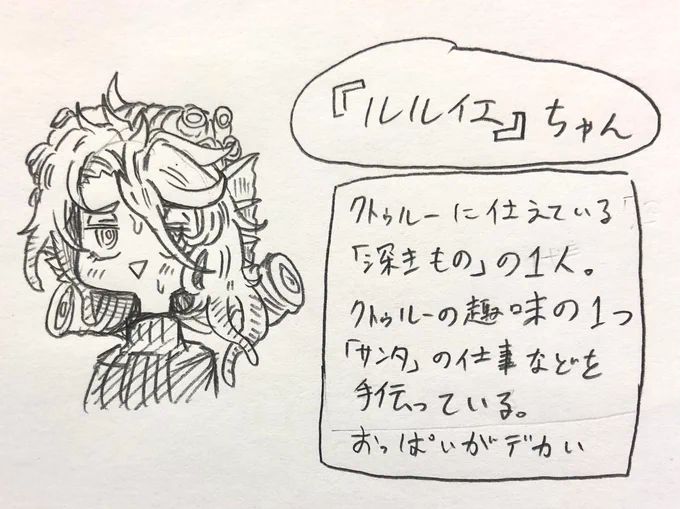 『ルルイエ』ちゃん
クトゥルーに仕えている
「深きもの」の1人。
クトゥルーの趣味の1つ
「サンタ」の仕事などを
手伝っている。
おっぱいがデカい